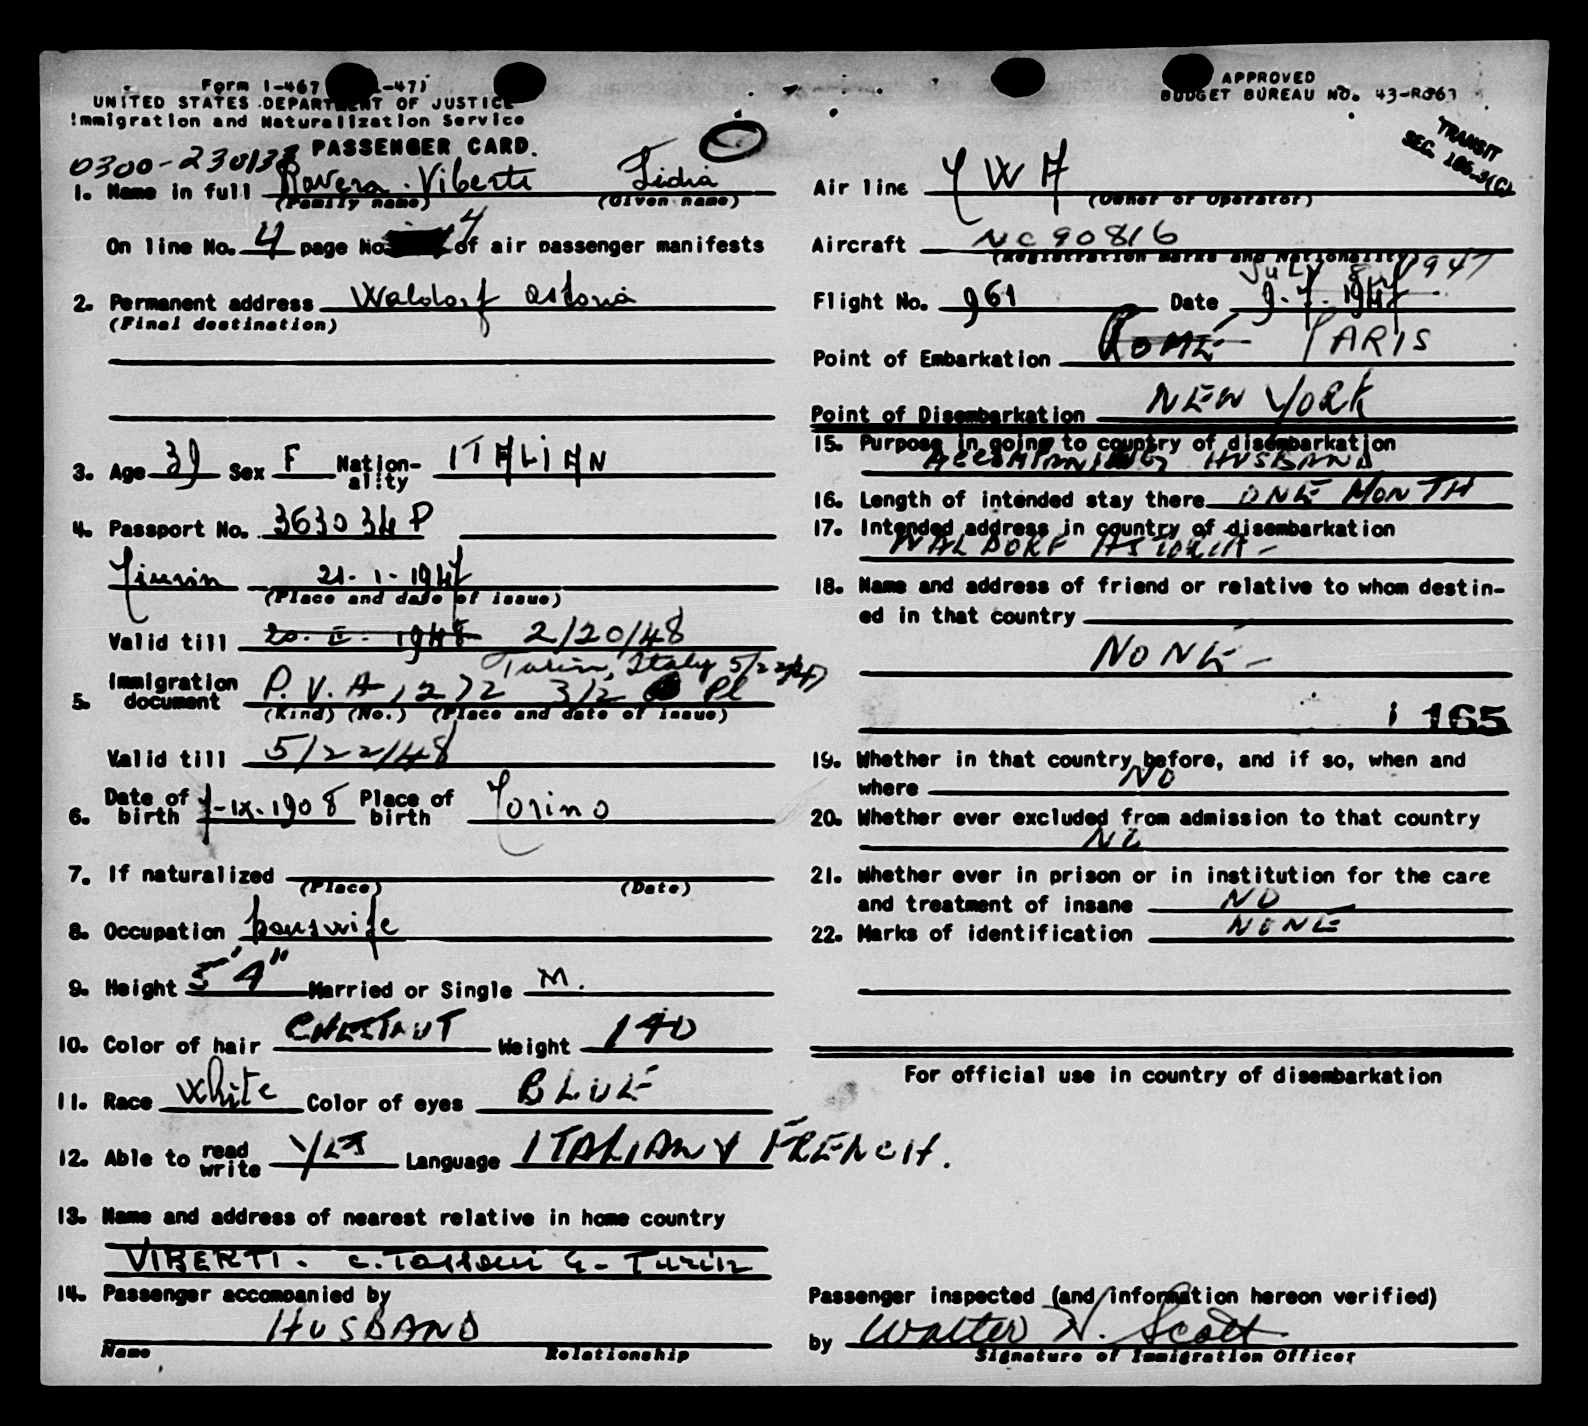 Form I-467
UNITED STATES DEPARTMENT OF JUSTICE
Immigration and Naturalization Service
PASSENGER CARD.
0300-230138
1. Name in full Rovera. Viberti Lidia
(Family name) (Given name)
On line No. 4 page No. 4 of air passenger manifests
2. Permanent address Waldorf astoria
(Final destination)
3. Age 39 Sex F Nation-ality ITALIAN
4. Passport No. 363034 P
Turin 21-1-1947
(Place and date of issue)
Valid till 20. II. 1948 2/20/48
Turin, Italy 5/22/47
5. Immigration document P.V.A, 272 3/2 Pl
(Kind) (No.) (Place and date of issue)
Valid till 5/22/48
6. Date of birth 7-IX-1908 Place of birth Torino
7. If naturalized
(Place) (Date)
8. Occupation houswife
9. Height 5'4" Married or Single M.
10. Color of hair CHESTNUT Weight 140
11. Race White Color of eyes BLUE
12. Able to read write YES Language ITALIAN & FRENCH.
13. Name and address of nearest relative in home country
VIBERTI. c. Tassoni - Turin
14. Passenger accompanied by
HUSBAND
Name Relationship
APPROVED
BUDGET BUREAU NO. 43-R067
TRANSIT
SEC. 165.3(C)
Air line TWA
(Owner or Operator)
Aircraft NC90816
(Registration marks and Nationality)
July 8, 1947
Flight No. 961 Date 9-7-1947
Point of Embarkation ROME PARIS
Point of Disembarkation NEW YORK
15. Purpose in going to country of disembarkation
ACCOMPANING HUSBAND
16. Length of intended stay there ONE MONTH
17. Intended address in country of disembarkation
WALDORF ASTORIA -
18. Name and address of friend or relative to whom destin-
ed in that country
NONE -
165
19. Whether in that country before, and if so, when and
where NO
20. Whether ever excluded from admission to that country
NO
21. Whether ever in prison or in institution for the care
and treatment of insane NO
22. Marks of identification NONE
For official use in country of disembarkation
Passenger inspected (and information hereon verified)
by Walter W. Scott
Signature of Immigration Officer